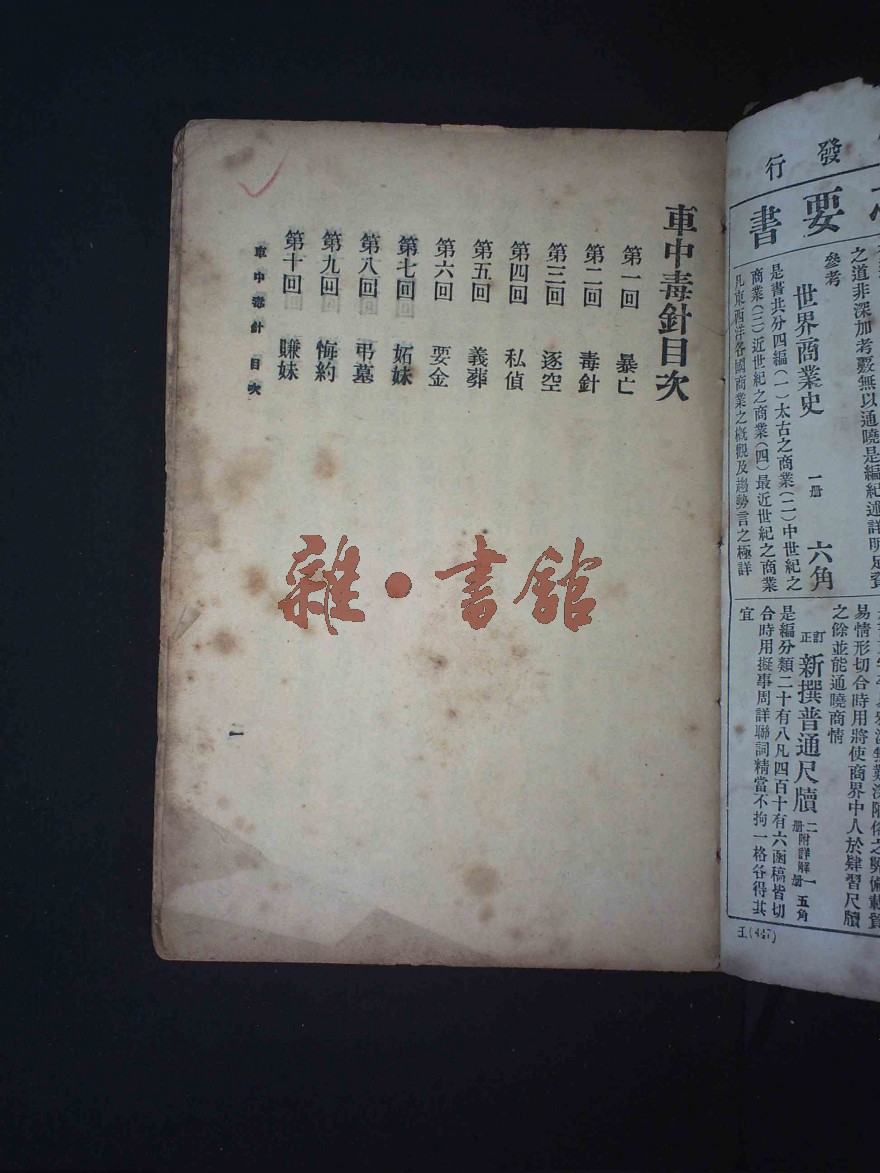 發行
要書
之道非深加考覈無以通曉是編紀述詳明足資
參考
世界商業史 一册 六角
是書共分四編(一)太古之商業(二)中世紀之
商業(三)近世紀之商業(四)最近世紀之商業
凡東西洋各國商業之概觀及趨勢言之極詳
易情形切合時用將使商界中人於肄習尺牘
之餘並能通曉商情
訂正 新撰普通尺牘 二册 附詳解一册 五角
是編分類二十有八凡四百十有六函稿皆切
合時用擬事周詳聯詞精當不拘一格各得其
宜
王(447)
車中毒針目次
第一回 暴亡
第二回 毒針
第三回 逐空
第四回 私偵
第五回 義葬
第六回 要金
第七回 妬妹
第八回 弔墓
第九回 悔約
第十回 賺妹
車中毒針 目次
一
雜·書館